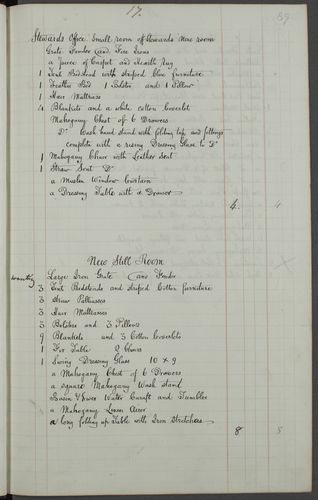 17.
89
Stewards Office Small room off Stewards New room
Grate Fender and Fire Irons
a Piece of Carpet and Hearth Rug
1 Tent Bedstead with striped blue furniture
1 Feather Bed 1 Bolster and 1 Pillow
1 Hair Mattrass
4 Blankets and a white cotton Coverlet
Mahogany Chest of 6 Drawers
Do Wash hand stand with folding top and fittings
complete with a rising Dressing Glass to Do
1 Mahogany Chair with Leather Seat
1 Straw Seat Do
a Muslin Window Curtain
a Dressing Table with a Drawer
4. 4
New Still Room
wanting Large Iron Grate and Fender
3 Tent Bedsteads and striped Cotton furniture
3 Straw Palliasses
3 Hair Mattrasses
3 Bolsters and 3 Pillows
9 Blankets and 3 Cotton Coverlets
1 Fir Table 2 Chairs
1 Swing Dressing Glass 10 x 9
a Mahogany Chest of 6 Drawers
a square Mahogany Wash stand
Bason & Ewer Water Caraft and Tumbler
a Mahogany Linen Airer
a long folding up Table with Iron Stretchers
8 8